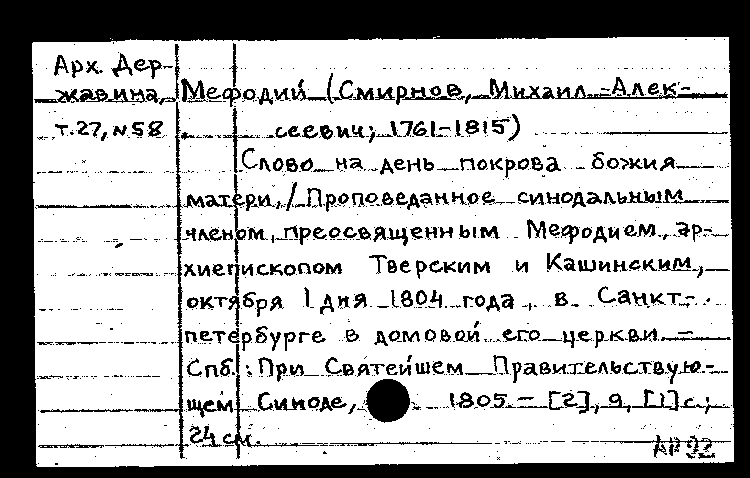 Арх. Дер-
жавина,
т.27, №58
Мефодий (Смирнов, Михаил Алек-
сеевич; 1761-1815)
Слово на день покрова божия
матери, / Проповеданное синодальным
членом, преосвященным Мефодием, ар-
хиепископом Тверским и Кашинским,
октября 1 дня 1804 года, в Санкт-
петербурге в домовой его церкви. –
Спб.: При Святейшем Правительствую-
щем Синоде, 1805. – [2], 9, [1] с.;
24 см.
АР 92